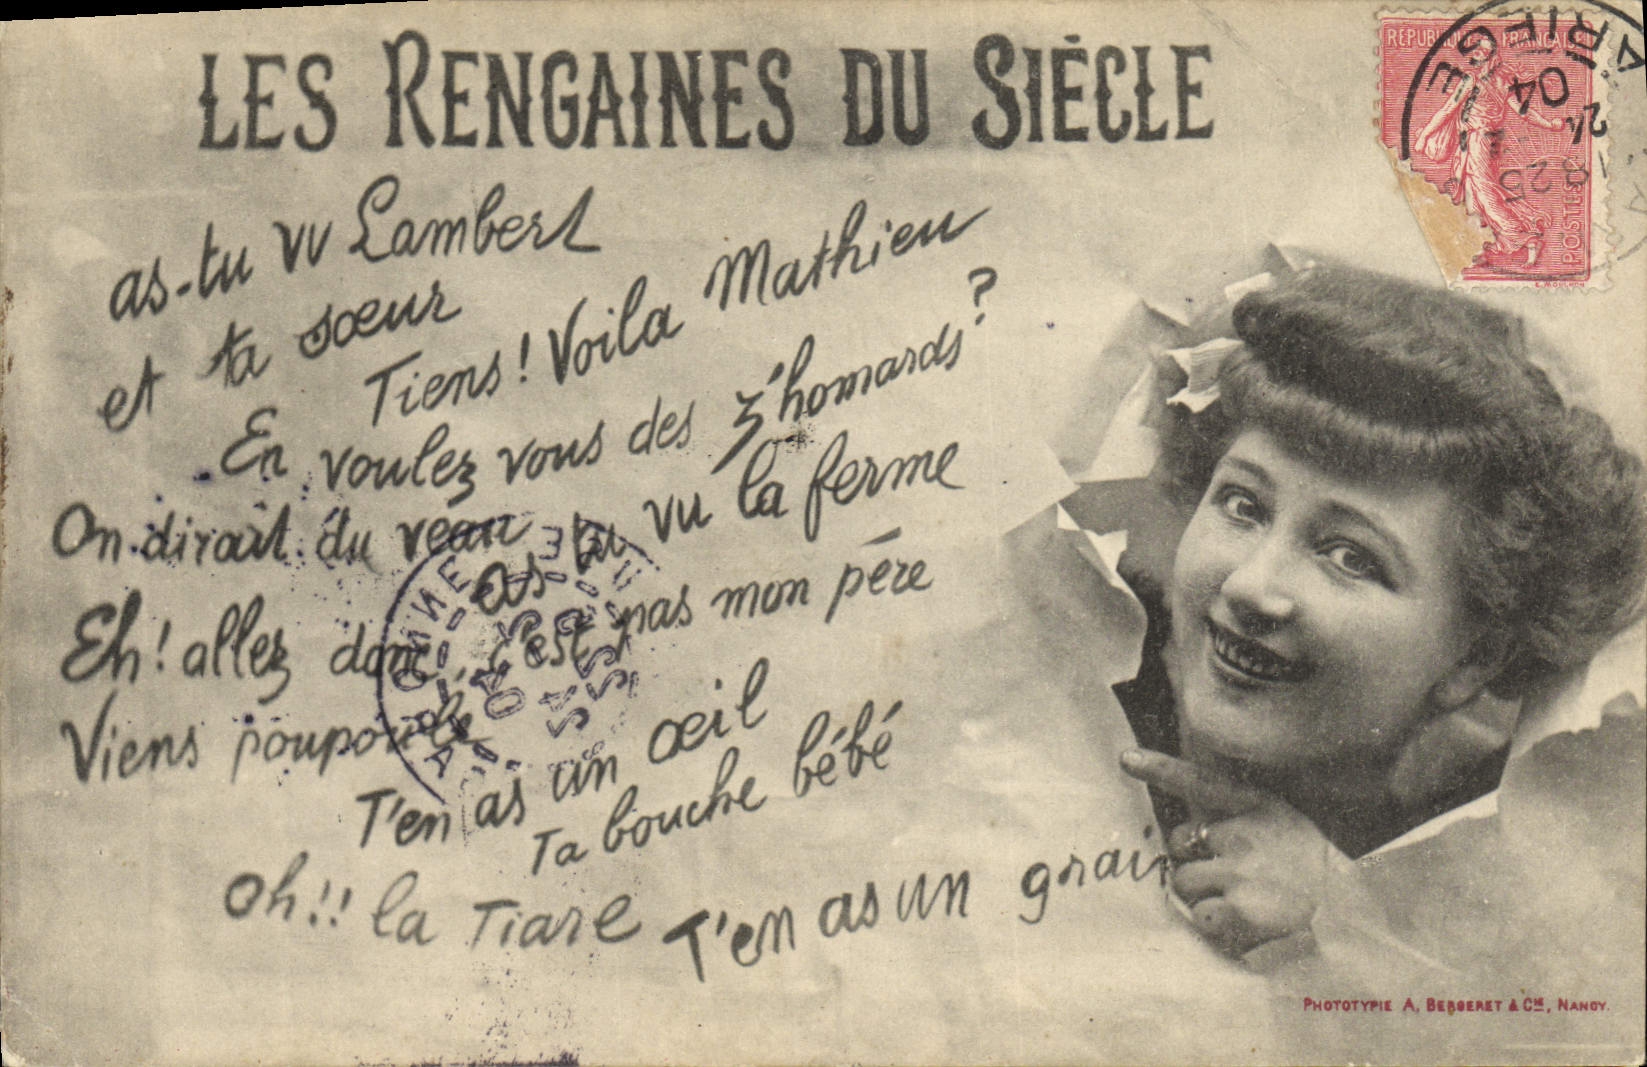 LES RENGAINES DU SIÈCLE
REPUBLIQUE FRANCAISE
ARIEGE
04
25
POSTES
E. MOUCHON
as-tu vu Lambert
et ta sœur
Tiens! Voila Mathieu
En voulez vous des z'homards?
On dirait du veau
as tu vu la ferme
Eh! allez donc, c'est pas mon père
Viens poupoule
T'en as un œil
Ta bouche bébé
Oh!! la Tiare
T'en as un grain
PHOTOTYPIE A. BERGERET & CIE, NANCY.